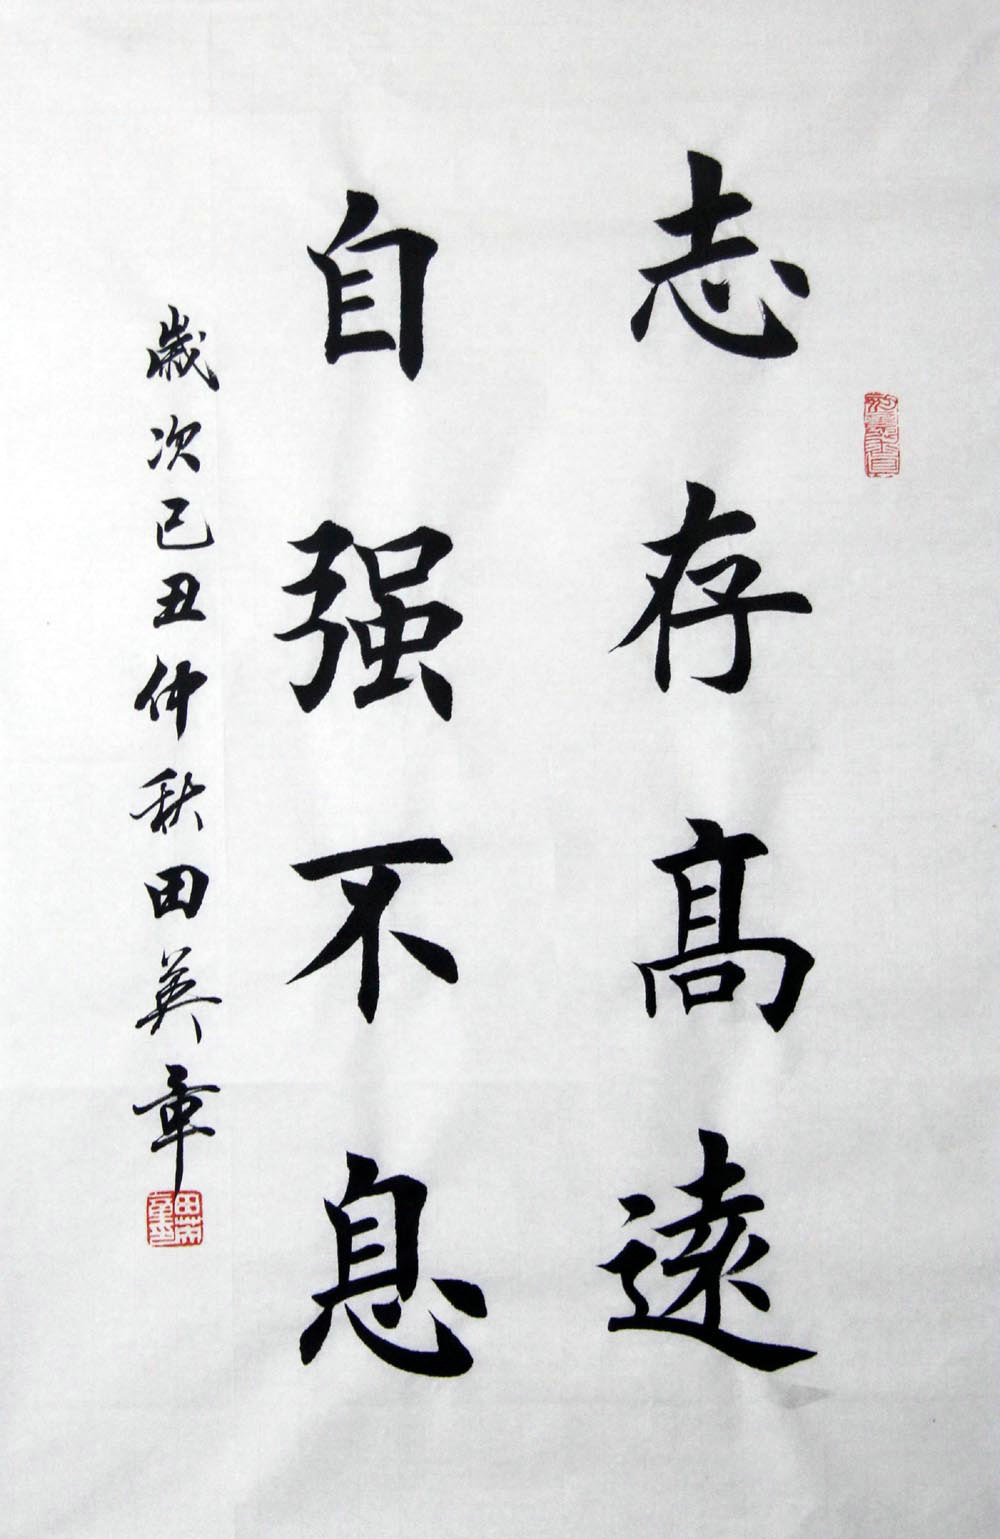 志存高遠
自强不息
歲次己丑仲秋田英章